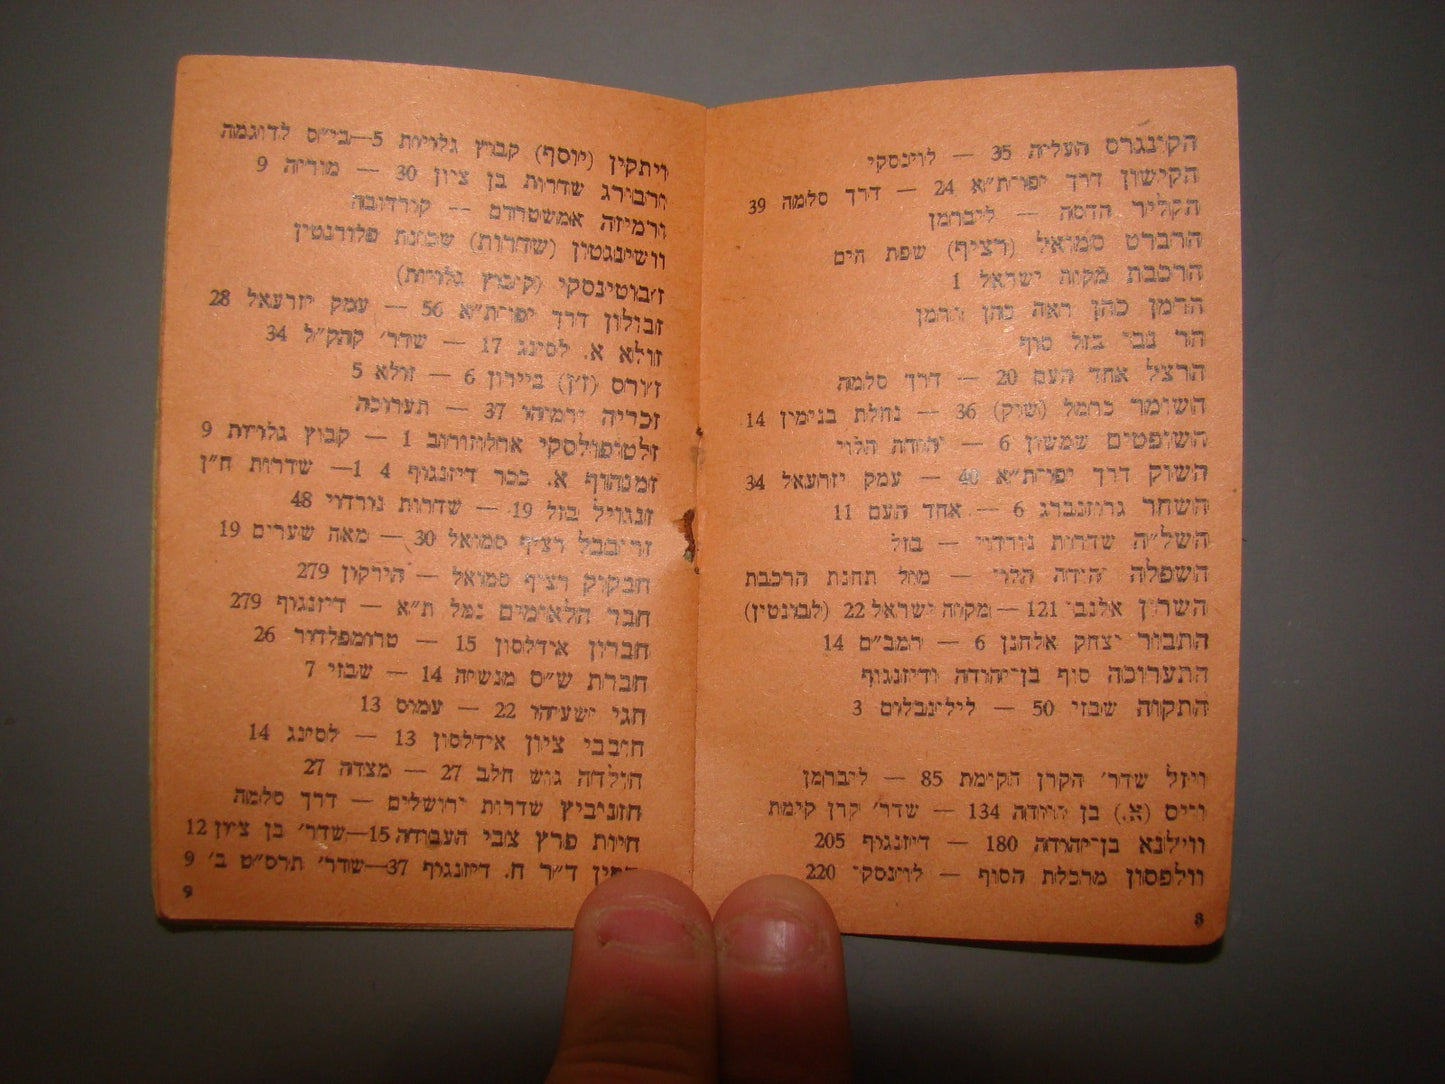 הקונגרס העליה 35 — לוינסקי
הקישון דרך יפו־ת״א 24 — דרך סלמה 39
הקליר הדסה — ליברמן
הרברט סמואל (רציף) שפת הים
הרכבת מקוה ישראל 1
הרמן כהן ראה כהן הרמן
הר נבו בזל סוף
הרצל אחד העם 20 — דרך סלמה
השומר כרמל (שוק) 36 — נחלת בנימין 14
השופטים שמשון 6 — יהודה הלוי
השוק דרך יפו־ת״א 40 — עמק יזרעאל 34
השחר גרוזנברג 6 — אחד העם 11
השל״ה שדרות נורדוי — בזל
השפלה יהודה הלוי — מול תחנת הרכבת
השרון אלנבי 121 — מקוה ישראל 22 (לבונטין)
התבור יצחק אלחנן 6 — רמב״ם 14
התערוכה סוף בן־יהודה ודיזנגוף
התקוה שבזי 50 — לילינבלום 3
ויזל שדר׳ הקרן הקימת 85 — ליברמן
וייס (א.) בן יהודה 134 — שדר׳ קרן קימת
ווילנא בן־יהודה 180 — דיזנגוף 205
וולפסון מרכלת הסוף — לוינסקי 220
8
ויתקין (יוסף) קבוץ גלויות 5—בי״ס לדוגמה
ורבורג שדרות בן ציון 30 — מוריה 9
ורמיזה אמשטרדם -- קורדובה
וושינגטון (שדרות) שכונת פלורנטין
ז׳בוטינסקי (קיבוץ גלויות)
זבולון דרך יפו־ת״א 56 — עמק יזרעאל 28
זולא א. לסינג 17 — שדר׳ קהק״ל 34
ז׳ורס (ז׳ן) ביירון 6 — זולא 5
זכריה ירמיהו 37 — תערוכה
זלטופולסקי אחלוזורוב 1 — קבוץ גלויות 9
זמנהוף א. ככר דיזנגוף 4 1— שדרות ח״ן
זנגויל בזל 19 — שדרות נורדוי 48
זרובבל רציף סמואל 30 — מאה שערים 19
חבקוק רציף סמואל — הירקון 279
חבר הלאומים נמל ת״א — דיזנגוף 279
חברון אידלסון 15 — טרומפלדור 26
חברת ש״ס מנשיה 14 — שבזי 7
חגי ישעיהו 22 — עמוס 13
חובבי ציון אידלסון 13 — לסינג 14
חולדה גוש חלב 27 — מצדה 27
חזנוביץ שדרות ירושלים — דרך סלמה
חיות פרץ צובי העבודה 15—שדר׳ בן ציון 12
ד״ר ח. דיזנגוף 37—שדר׳ תרס״ט ב׳ 9
9